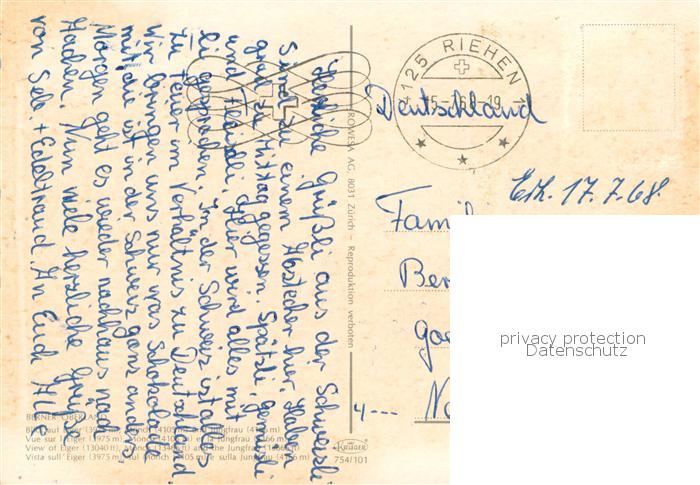 Herzliche Grüßli aus der Schweizli
Sind zu einem Abstecher hier, haben
grad zu Mittag gegessen. Spätzli, gemüsli
und Fleischli, hier wird alles mit
li gesprochen. In der Schweiz ist alles
zu teuer im Verhältnis zu Deutschland.
Wir bringen uns nur was Schokolade
mit, die ist in der Schweiz ganz anders.
Morgen geht es wieder nachhaus nach
Aachen. Nun viele herzliche Grüße
von Seb. + Edeltraud. An Euch ALLE
ROWESA AG, 8031 Zürich – Reproduktion verboten
BERNER OBERLAND
Blick auf Eiger (3975 m), Mönch (4105 m) und Jungfrau (4166 m)
Vue sur l'Eiger (3975 m), Mönch (4105 m) et la Jungfrau (4166 m)
View of Eiger (13040 ft), Mönch (13468 ft) and the Jungfrau
Vista sull'Eiger (3975 m), sul Mönch (4105 m) e sulla Jungfrau (4166 m)
Krüger
754/101
4125 RIEHEN
Deutschland
Erh. 17.7.68.
Famili
Ber
Goe
4---
privacy protection
Datenschutz